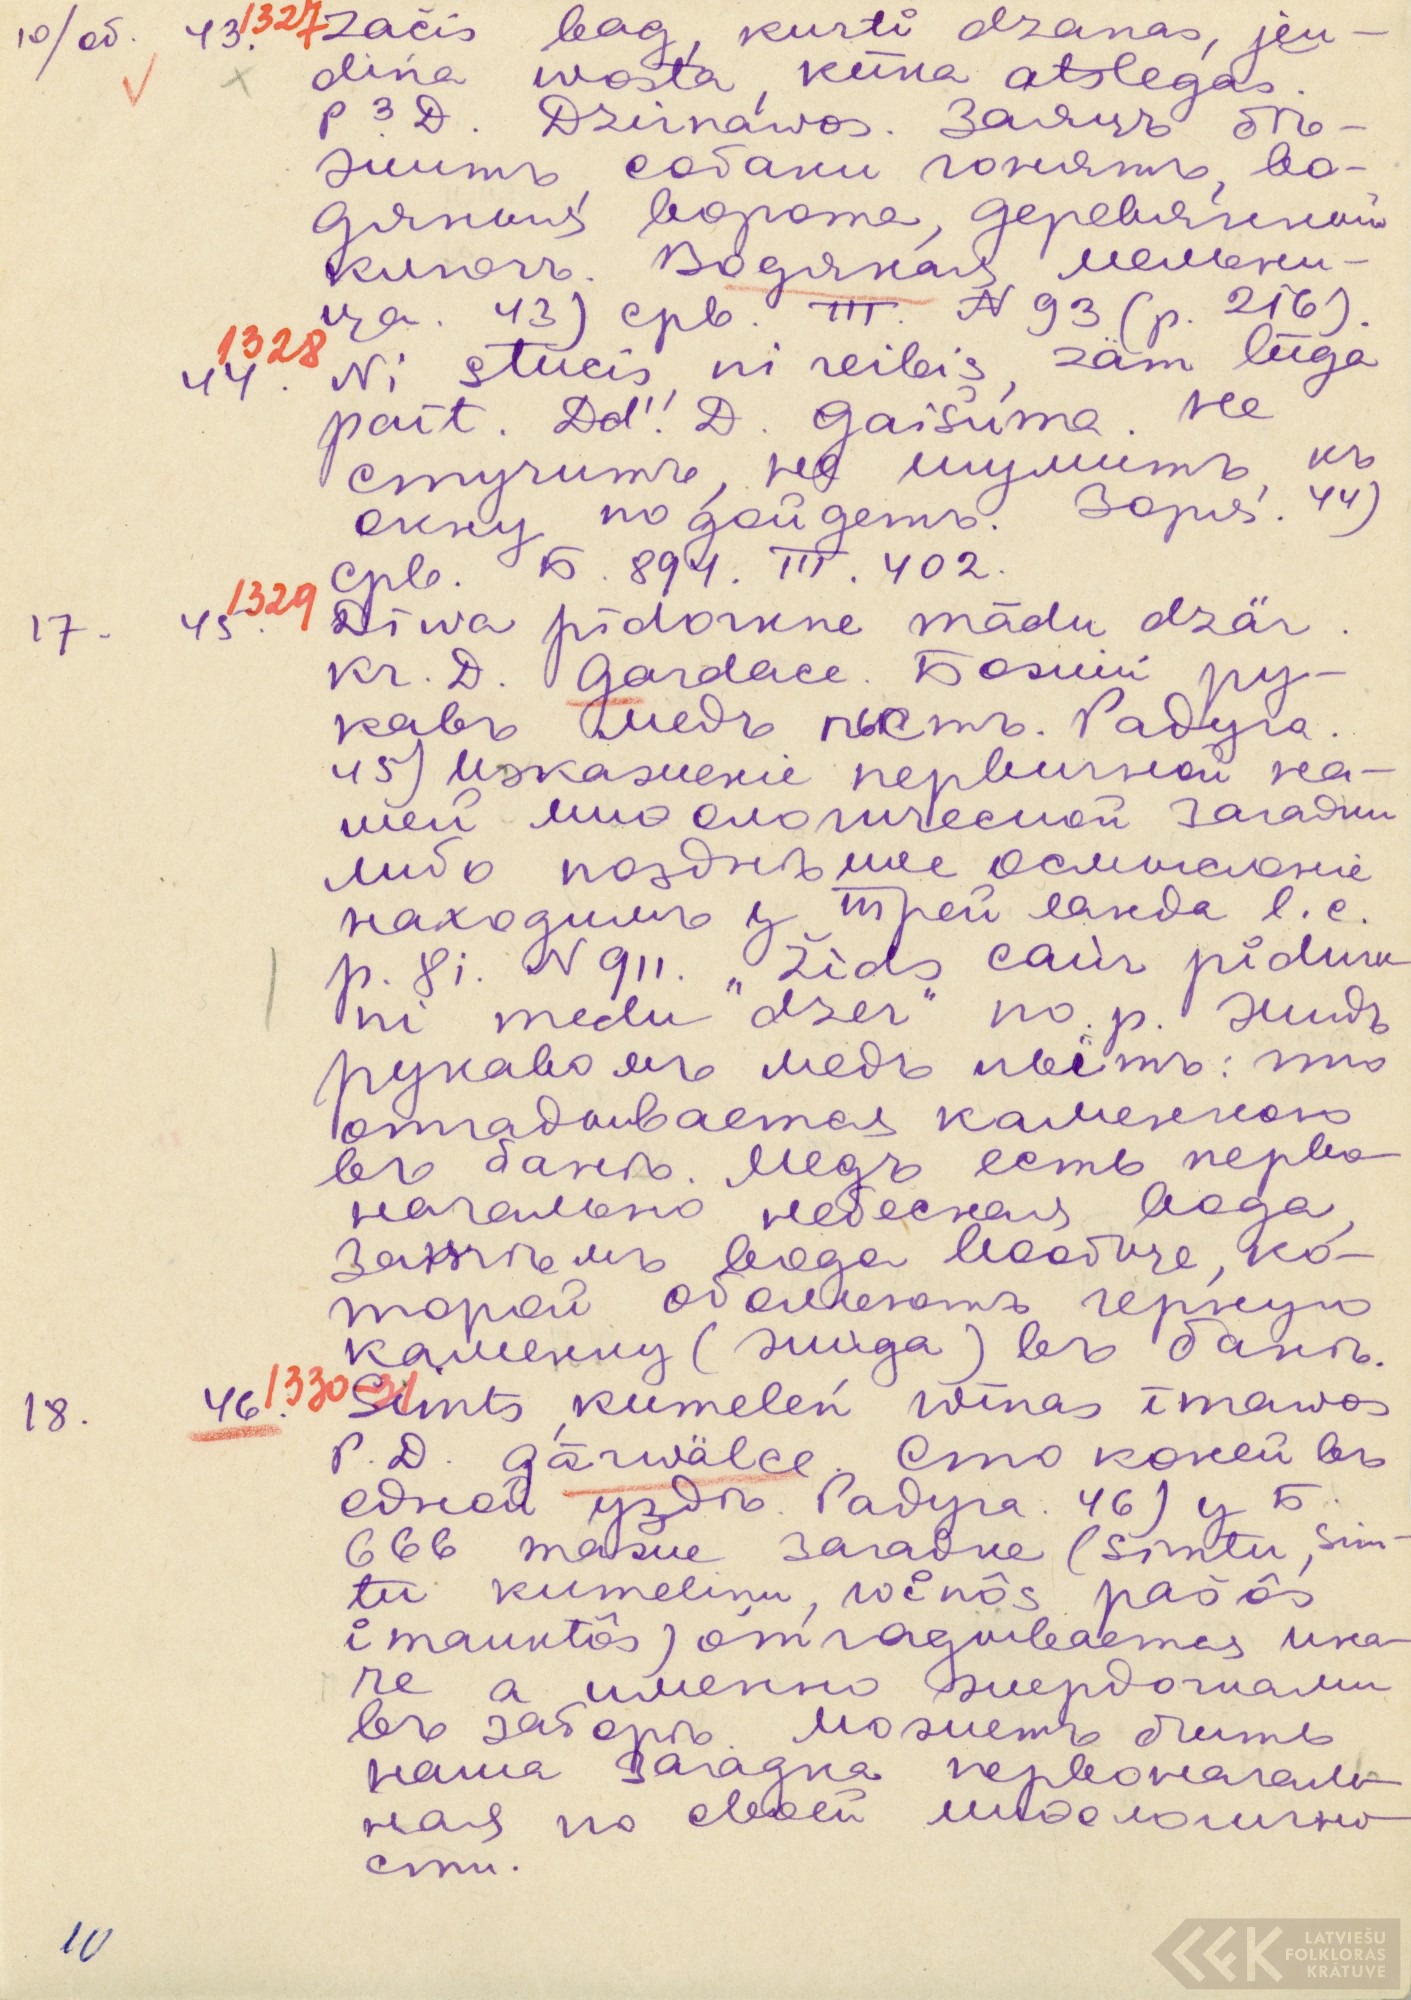 10/об. 43. 1327 začis bag, kurti dzanas, jeu-
dińa wosta, kūka atslegas.
P. 3. D. Dzirnáwos. Заяцъ бѣ-
житъ, собаки гонятъ, во-
дяныя ворота, деревянный
ключъ. Водяная мельни-
ца. 43) срв. III. N 93 (p. 216).
1328
44. Ni stucis, ni reibis, zäm lūga
pait. Dd!! D. gaišúma. Не
стучитъ, не шумитъ, къ
окну подойдетъ. Заря. 44)
срв. Б. 894. III. 402.
17. 45. 1329 Diwa pīdorkne mādu dzär.
kr. D. gardace. Божій ру-
кавъ медъ пьетъ. Радуга.
45) Искаженіе первичной на-
шей миѳологической загадки
либо позднѣйшее осмысленіе
находимъ у Трейланда l. c.
p. 81. N 911. „Žids caur pīdurk
ni medu "dzer" по. р. Жидъ
рукавомъ медъ пьетъ: что
отгадывается каменкою
въ банѣ. Медъ есть перво-
начально небесная вода,
затѣмъ вода вообще, ко-
торой обливаютъ черную
каменку (жида) въ банѣ.
18. 46. 1330-31 Simts kumeleń wīnas īmawos
P. D. gārwälce. Сто коней въ
одной уздѣ. Радуга. 46) у Б.
666 такие загадке (simtu, sim-
tu kumeliņu, wīnôs pašôs
īmauktôs) отгадывается ина-
че а именно жердочками
въ заборѣ. Можетъ быть
наша загадка первоначаль-
ная по своей миѳологично-
сти.
10
LATVIEŠU
FOLKLORAS
KRĀTUVE